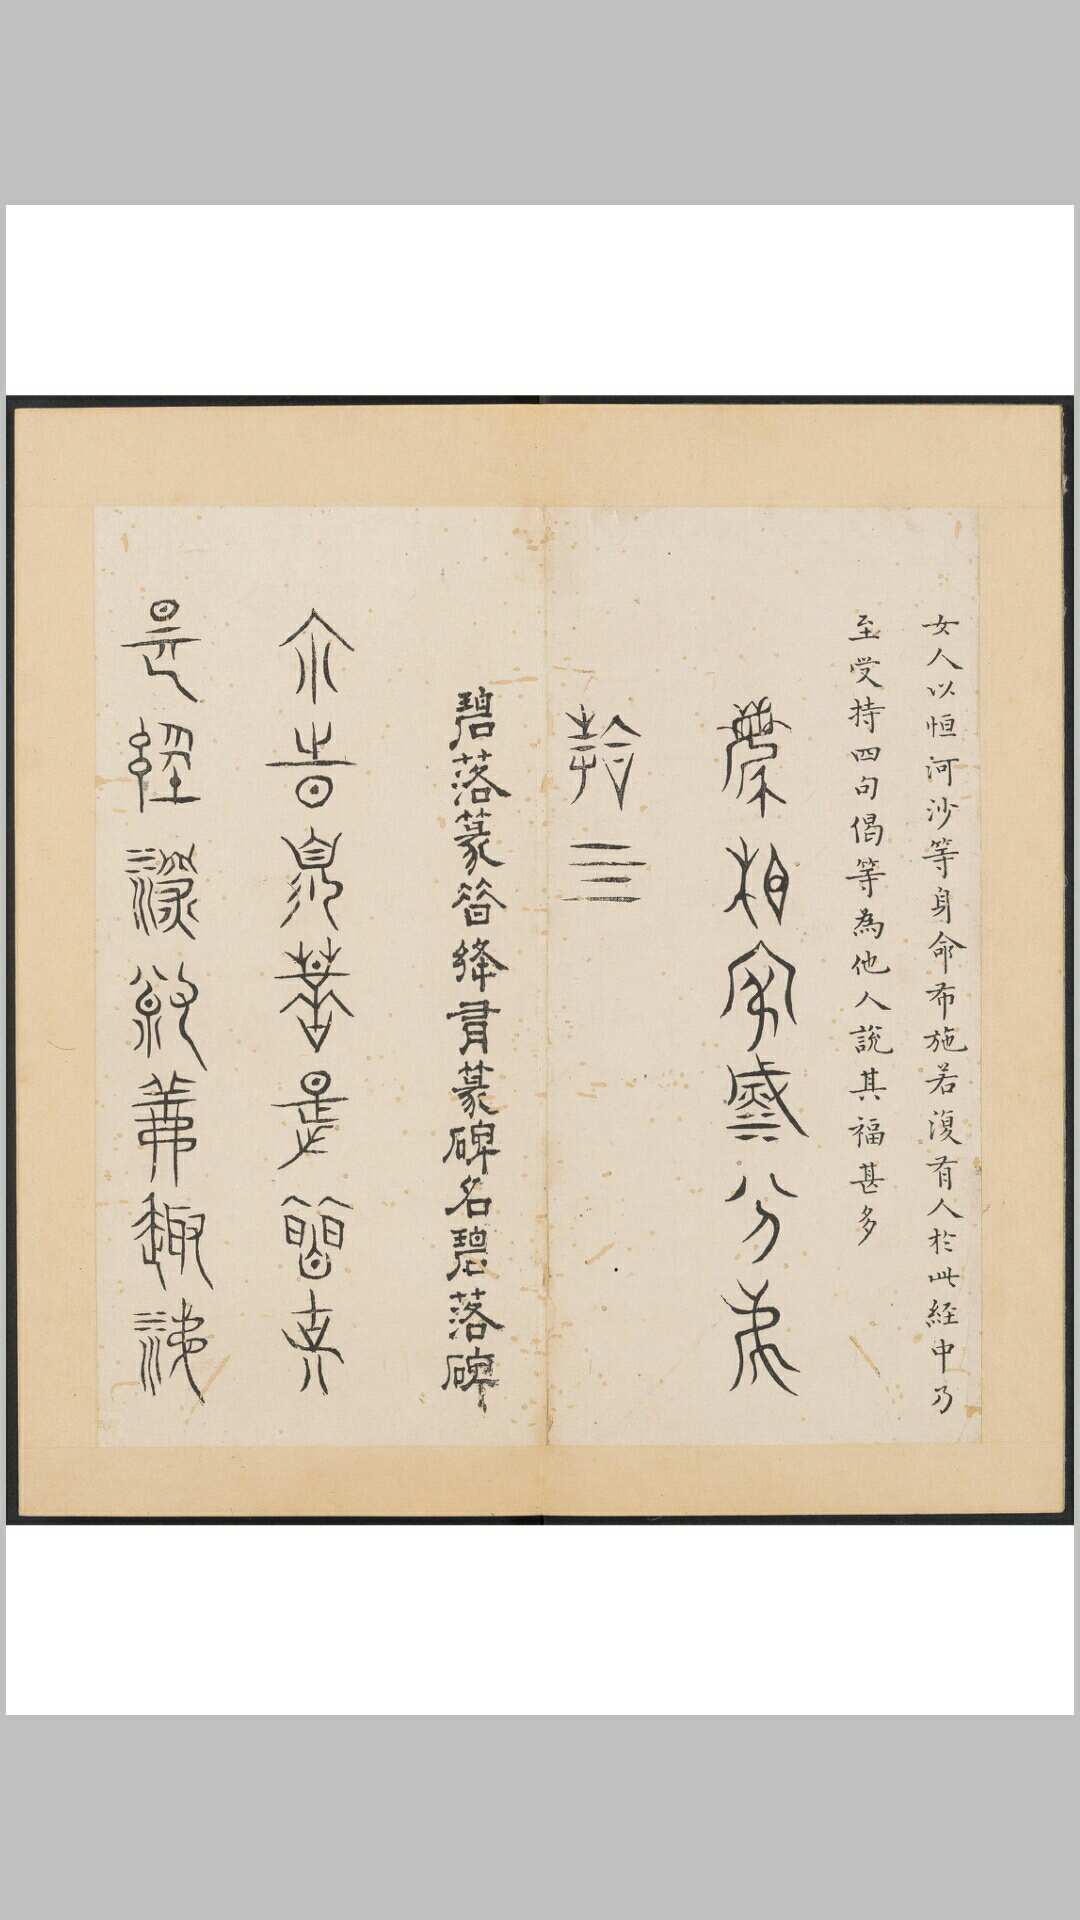 女人以恒河沙等身命布施若復有人於此経中乃
至受持四句偈等為他人說其福甚多
離相寂滅分弟
拾四
碧落篆者絳有篆碑名碧落碑
尒時須菩提聞說
是經深解義趣涕